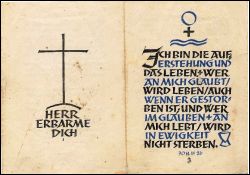 HERR
ERBARME
DICH
ICH BIN DIE AUF,
ERSTEHUNG UND
DAS LEBEN, WER
AN MICH GLAUBT,
WIRD LEBEN, AUCH
WENN ER GESTOR,
BEN IST, UND WER
IM GLAUBEN AN
MICH LEBT, WIRD
IN EWIGKEIT
NICHT STERBEN.